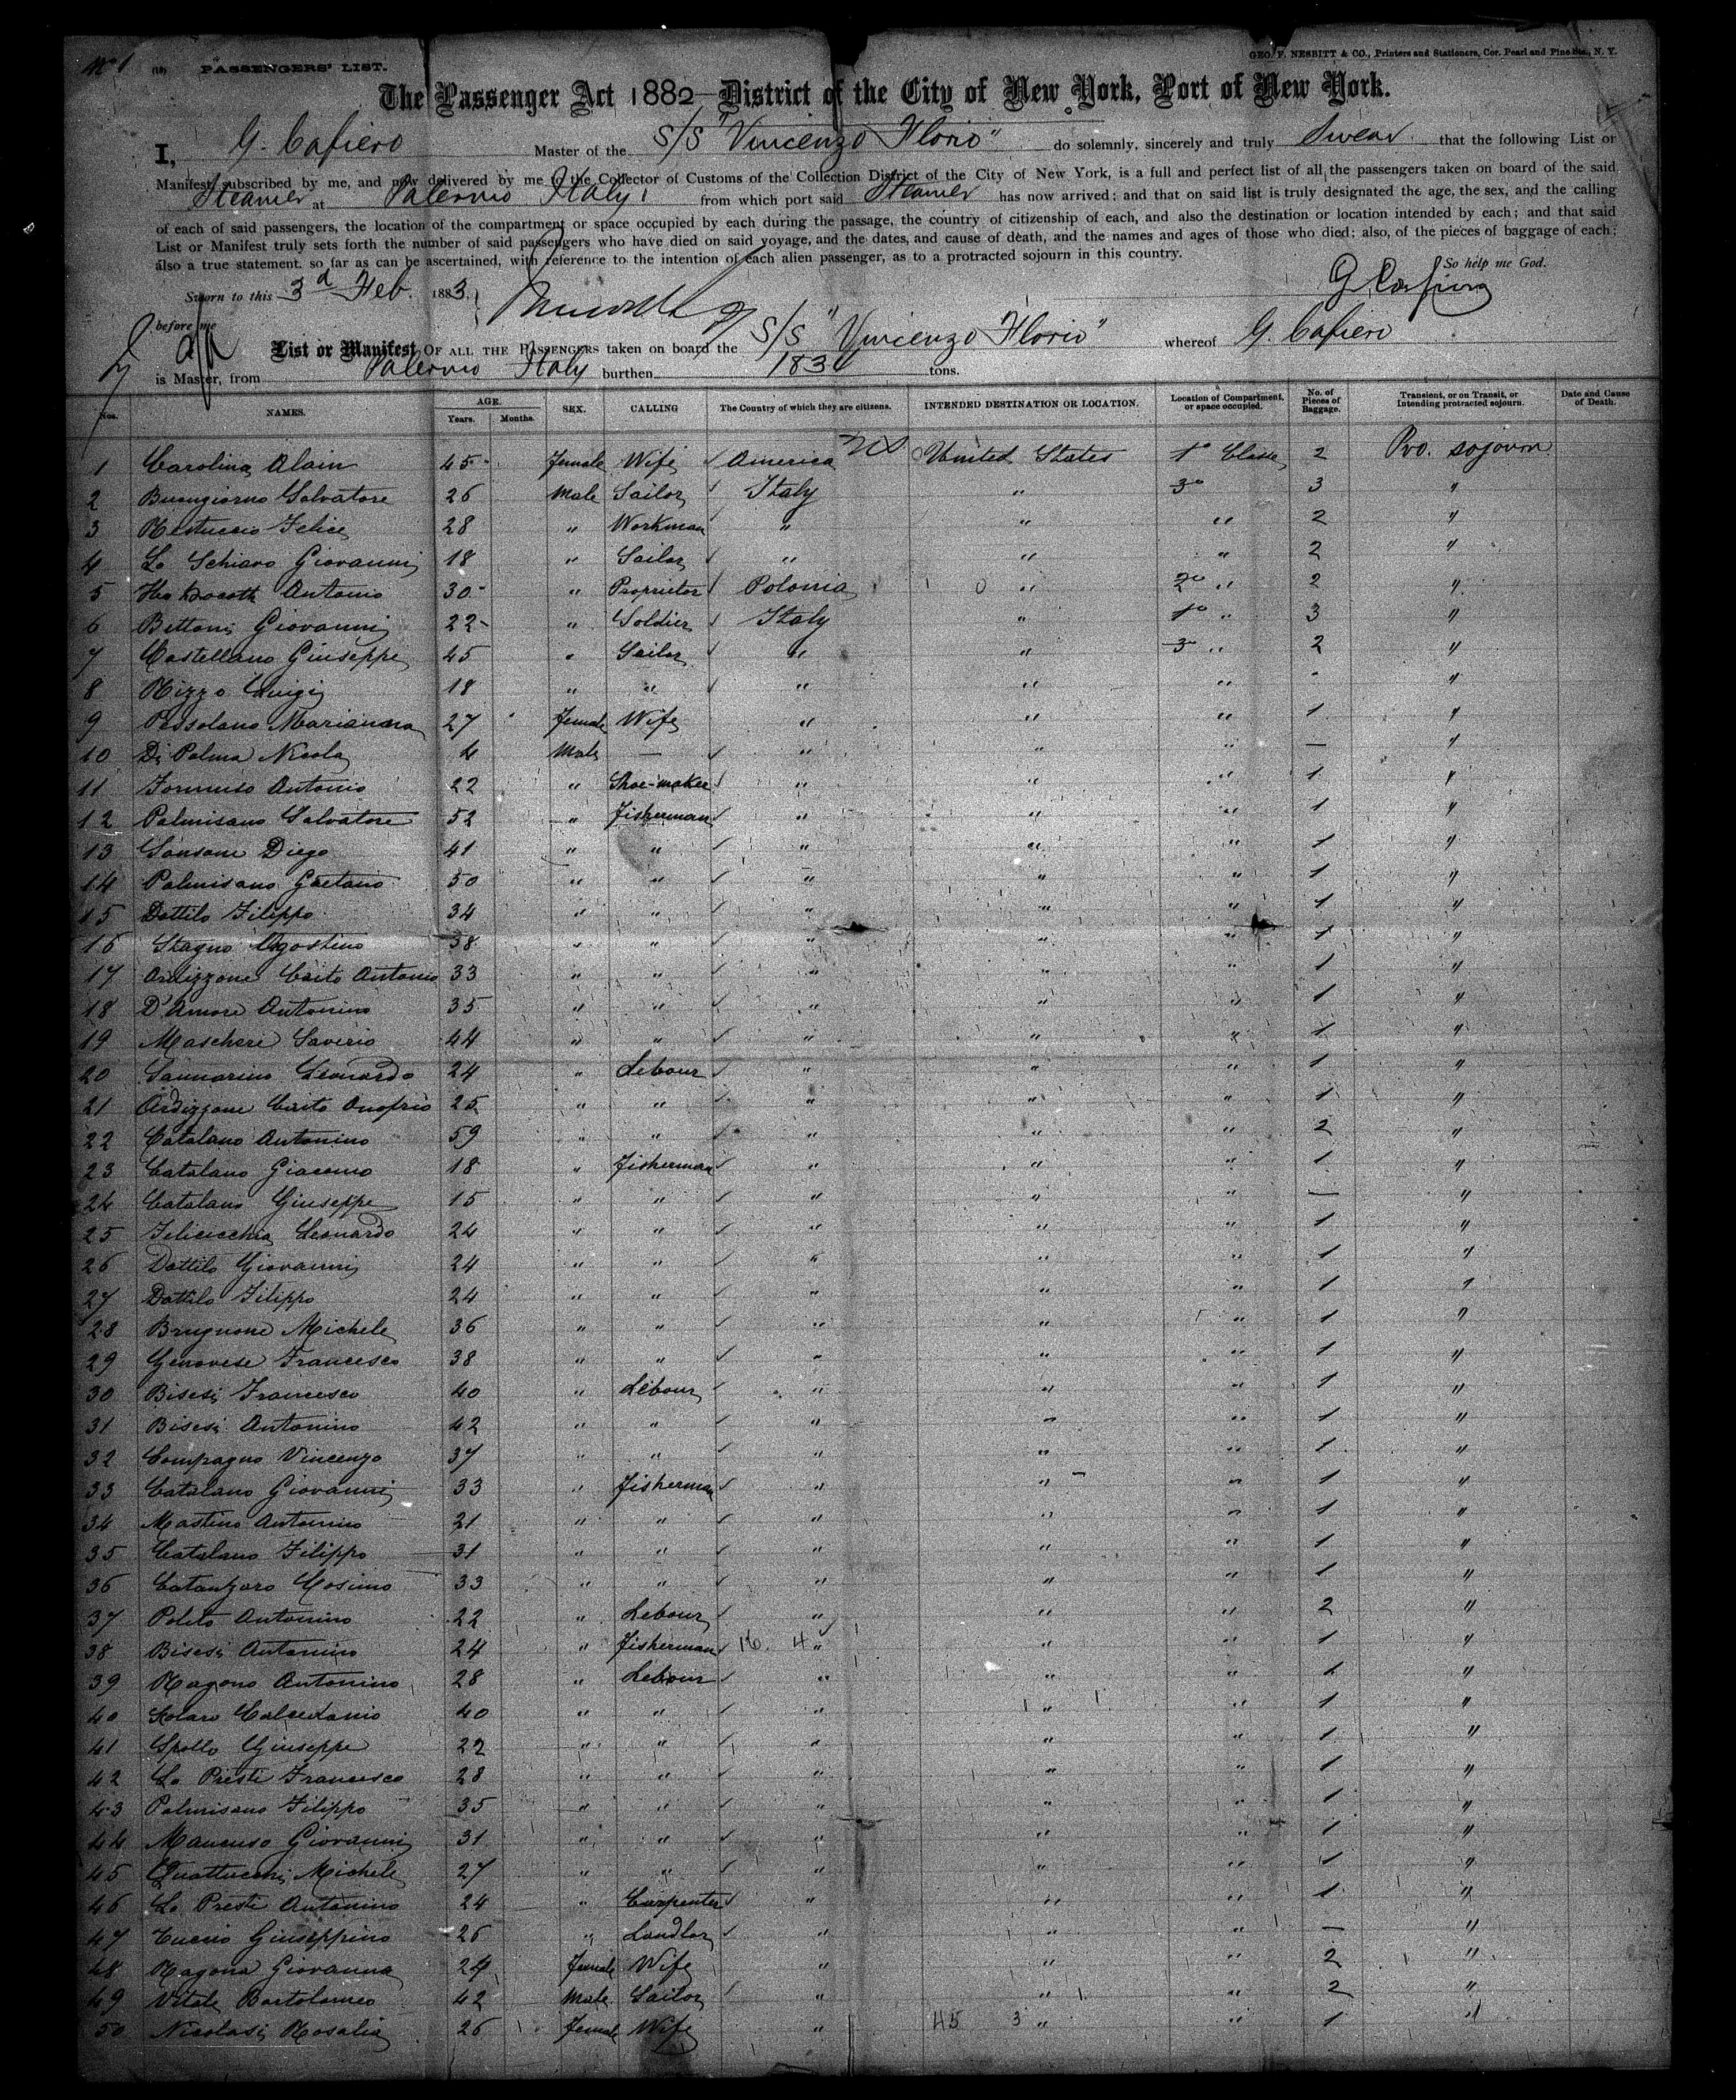 No 1 (19) PASSENGERS' LIST. GEO. F. NESBITT & CO., Printers and Stationers, Cor. Pearl and Pine Sts., N. Y.
The Passenger Act 1882 District of the City of New York, Port of New York.
I, G. Cafiero Master of the S/S "Vincenzo Florio" do solemnly, sincerely and truly Swear that the following List or
Manifest, subscribed by me, and now delivered by me to the Collector of Customs of the Collection District of the City of New York, is a full and perfect list of all the passengers taken on board of the said
Steamer at Palermo Italy, from which port said Steamer has now arrived; and that on said list is truly designated the age, the sex, and the calling
of each of said passengers, the location of the compartment or space occupied by each during the passage, the country of citizenship of each, and also the destination or location intended by each; and that said
List or Manifest truly sets forth the number of said passengers who have died on said voyage, and the dates, and cause of death, and the names and ages of those who died; also, of the pieces of baggage of each;
also a true statement, so far as can be ascertained, with reference to the intention of each alien passenger, as to a protracted sojourn in this country.
So help me God.
Sworn to this 3d Feb. 1883. G Cafiero
before me
List or Manifest OF ALL THE PASSENGERS taken on board the S/S "Vincenzo Florio" whereof G. Cafiero
is Master, from Palermo Italy burthen tons.
Nos. NAMES. AGE. Years. Months. SEX. CALLING The Country of which they are citizens. INTENDED DESTINATION OR LOCATION. Location of Compartment, or space occupied. No. of Pieces of Baggage. Transient, or on Transit, or Intending protracted sojourn. Date and Cause of Death.
1 Carolina Alain 45 Female Wife America United States 1° Classe 2 Pro. sojourn
2 Buongiorno Salvatore 26 Male Sailor Italy " 3° 3 "
3 Restuccio Felice 28 " Workman " " " 2 "
4 Lo Schiavo Giovanni 18 " Sailor " " " 2 "
5 Antonio 30 " Proprietor Polonia " 2° " 2 "
6 Bettoni Giovanni 22 " Soldier Italy " 1° " 3 "
7 Castellano Giuseppe 45 " Sailor " " 3 " 2 "
8 Rizzo Luigi 18 " " " " " "
9 Pessolano Marianna 27 Female Wife " " " 1 "
10 Di Palma Nicola 4 Male — " " " — "
11 Antonio 22 " Shoe-maker " " " 1 "
12 Palmisano Salvatore 52 " Fisherman " " " 1 "
13 Sansone Diego 41 " " " " " 1 "
14 Palmisano Gaetano 50 " " " " " 1 "
15 Dattilo Filippo 34 " " " " " 1 "
16 Stagno Agostino 38 " " " " " 1 "
17 Ardizzone Caito Antonio 33 " " " " " 1 "
18 D'Amore Antonino 35 " " " " " 1 "
19 Mascheri Saverio 44 " " " " " 1 "
20 Sannarino Leonardo 24 " Lebour " " " 1 "
21 Ardizzone Caito Onofrio 25 " " " " " 1 "
22 Catalano Antonino 59 " " " " " 2 "
23 Catalano Giacomo 18 " Fisherman " " " 1 "
24 Catalano Giuseppe 15 " " " " " — "
25 Felicicchia Leonardo 24 " " " " " 1 "
26 Dattilo Giovanni 24 " " " " " 1 "
27 Dattilo Filippo 24 " " " " " 1 "
28 Brugnone Michele 36 " " " " " 1 "
29 Genovese Francesco 38 " " " " " 1 "
30 Bisesi Francesco 40 " Lebour " " " 1 "
31 Bisesi Antonino 42 " " " " " 1 "
32 Compagno Vincenzo 37 " " " " " 1 "
33 Catalano Giovanni 33 " Fisherman " " " 1 "
34 Mastino Antonino 21 " " " " " 1 "
35 Catalano Filippo 31 " " " " " 1 "
36 Catanzaro Cosimo 33 " " " " " 1 "
37 Polito Antonino 22 " Lebour " " " 2 "
38 Bisesi Antonino 24 " Fisherman 16 4 " " " 1 "
39 Ragona Antonino 28 " Lebour " " " 1 "
40 Solaro Calcedonio 40 " " " " " 1 "
41 Spallo Giuseppe 22 " " " " " 1 "
42 Lo Presti Francesco 28 " " " " " 1 "
43 Palmisano Filippo 35 " " " " " 1 "
44 Mancuso Giovanni 31 " " " " " 1 "
45 Quattucchi Michele 27 " " " " " 1 "
46 Lo Presti Antonino 24 " Carpenter " " " 1 "
47 Cuccio Giuseppino 26 " Landlor " " " — "
48 Ragona Giovanna 24 Female Wife " " " 2 "
49 Vitale Bartolomeo 42 Male Sailor " " " 2 "
50 Nicolasi Rosalia 26 Female Wife " 45 3 " " 1 "